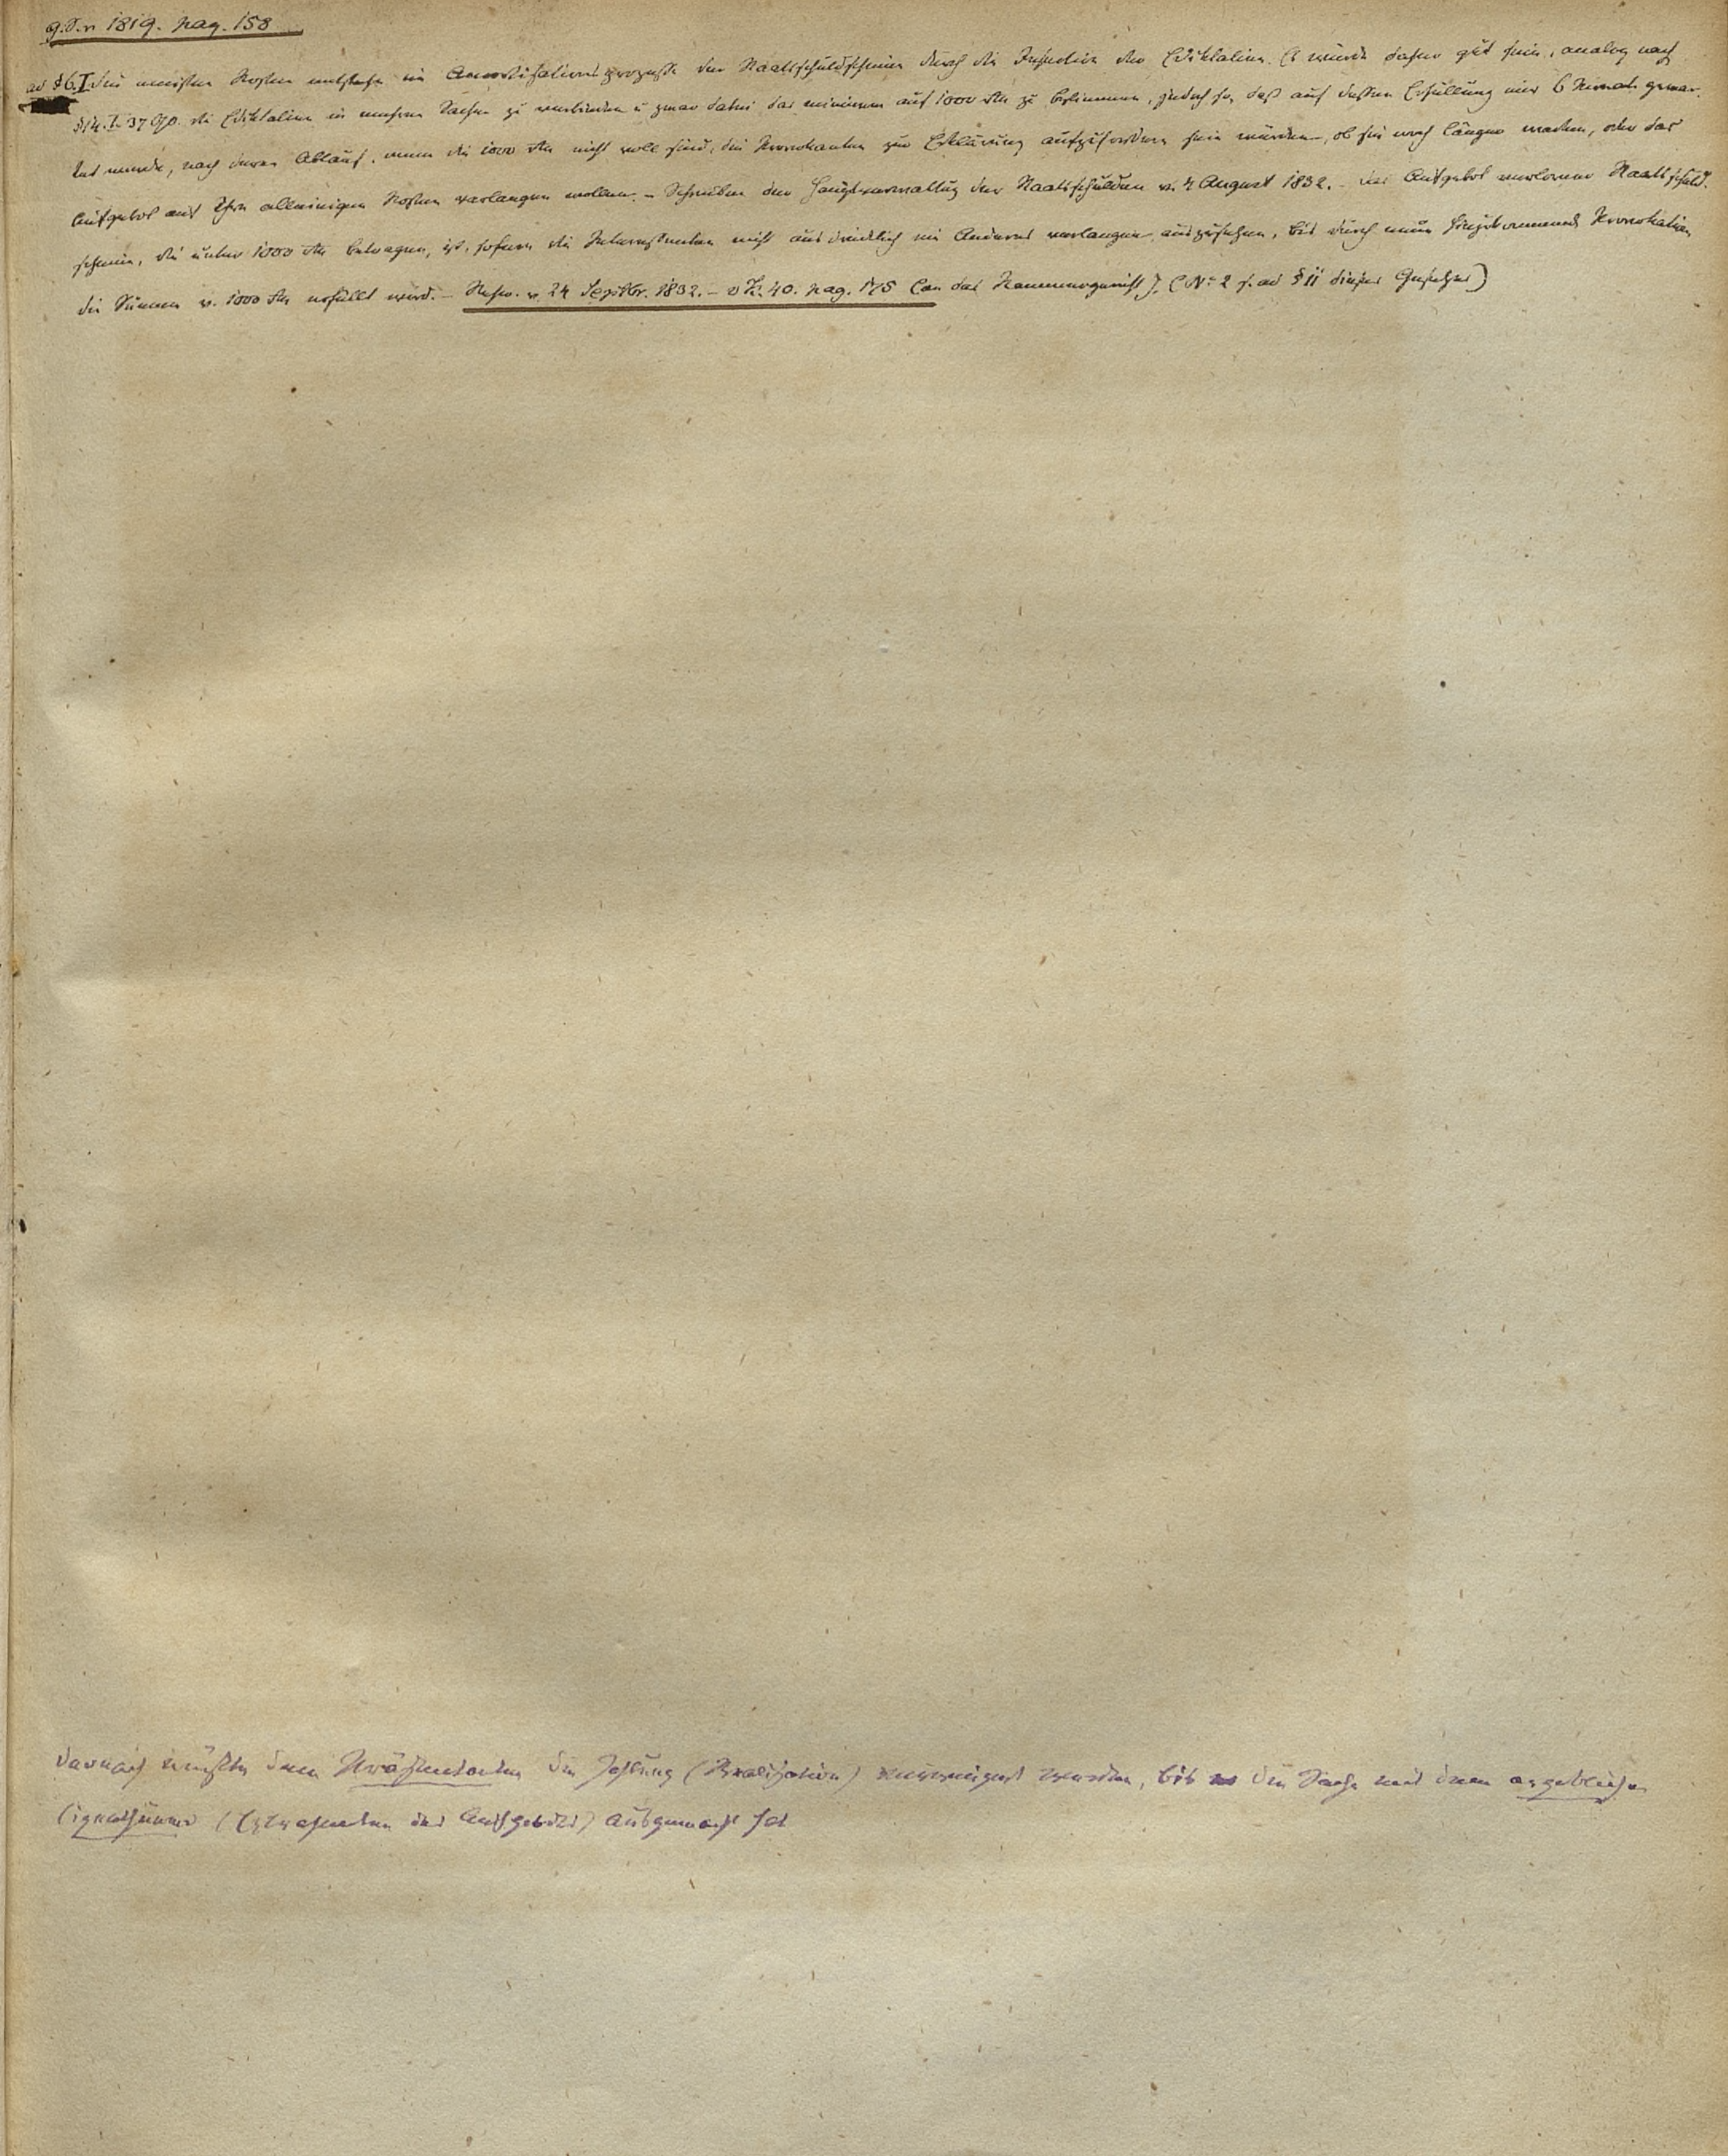 G.S. v 1819. pag. 158
ad § 6. I die meisten Kosten entstehe im Amortisationsprozesse der Staatsschuldscheine durch die Insertion der Ediktalien. Es würde daher gut sein, analog nach
§ 14. T. 37 O/p. die Ediktalien in mehren Sachen zu verbinden u zwar dabei das minimum auf 1000 rth zu bestimmen, jedoch so, daß auf dessen Erfüllung nur 6 Monate gewar-
tet werde, nach deren Ablauf, wenn die 1000 rth nicht voll sind, die Provokanten zur Erklärung aufzufordern sein würden, ob sie noch länger warten, oder das
Aufgebot auf Ihre alleinigen Kosten verlangen wollen. – Schreiben der Hauptverwaltung der Staatsschulden v. 4 August 1832. – Das Aufgebot verlorener Staatsschuld-
scheine, die unter 1000 rth betragen, ist, sofern die Interessenten nicht ausdrücklich ein Anderes verlangen, auszusetzen, bis durch neue hinzukommende Provokation
die Summe v. 1000 rth erfüllt wird. – Reskr. v. 24 Septbr. 1832. – v K. 40. pag. 175 (an das Kammergericht). (No 2 s. ad § 11 dieses Gesetzes)
darnach müßte dem Präsentanten die Zahlung (Realisation) verweigert werden, bis die Sache mit dem angeblichen
Eigenthümer (Extrahenten des Aufgebots) ausgemacht sei